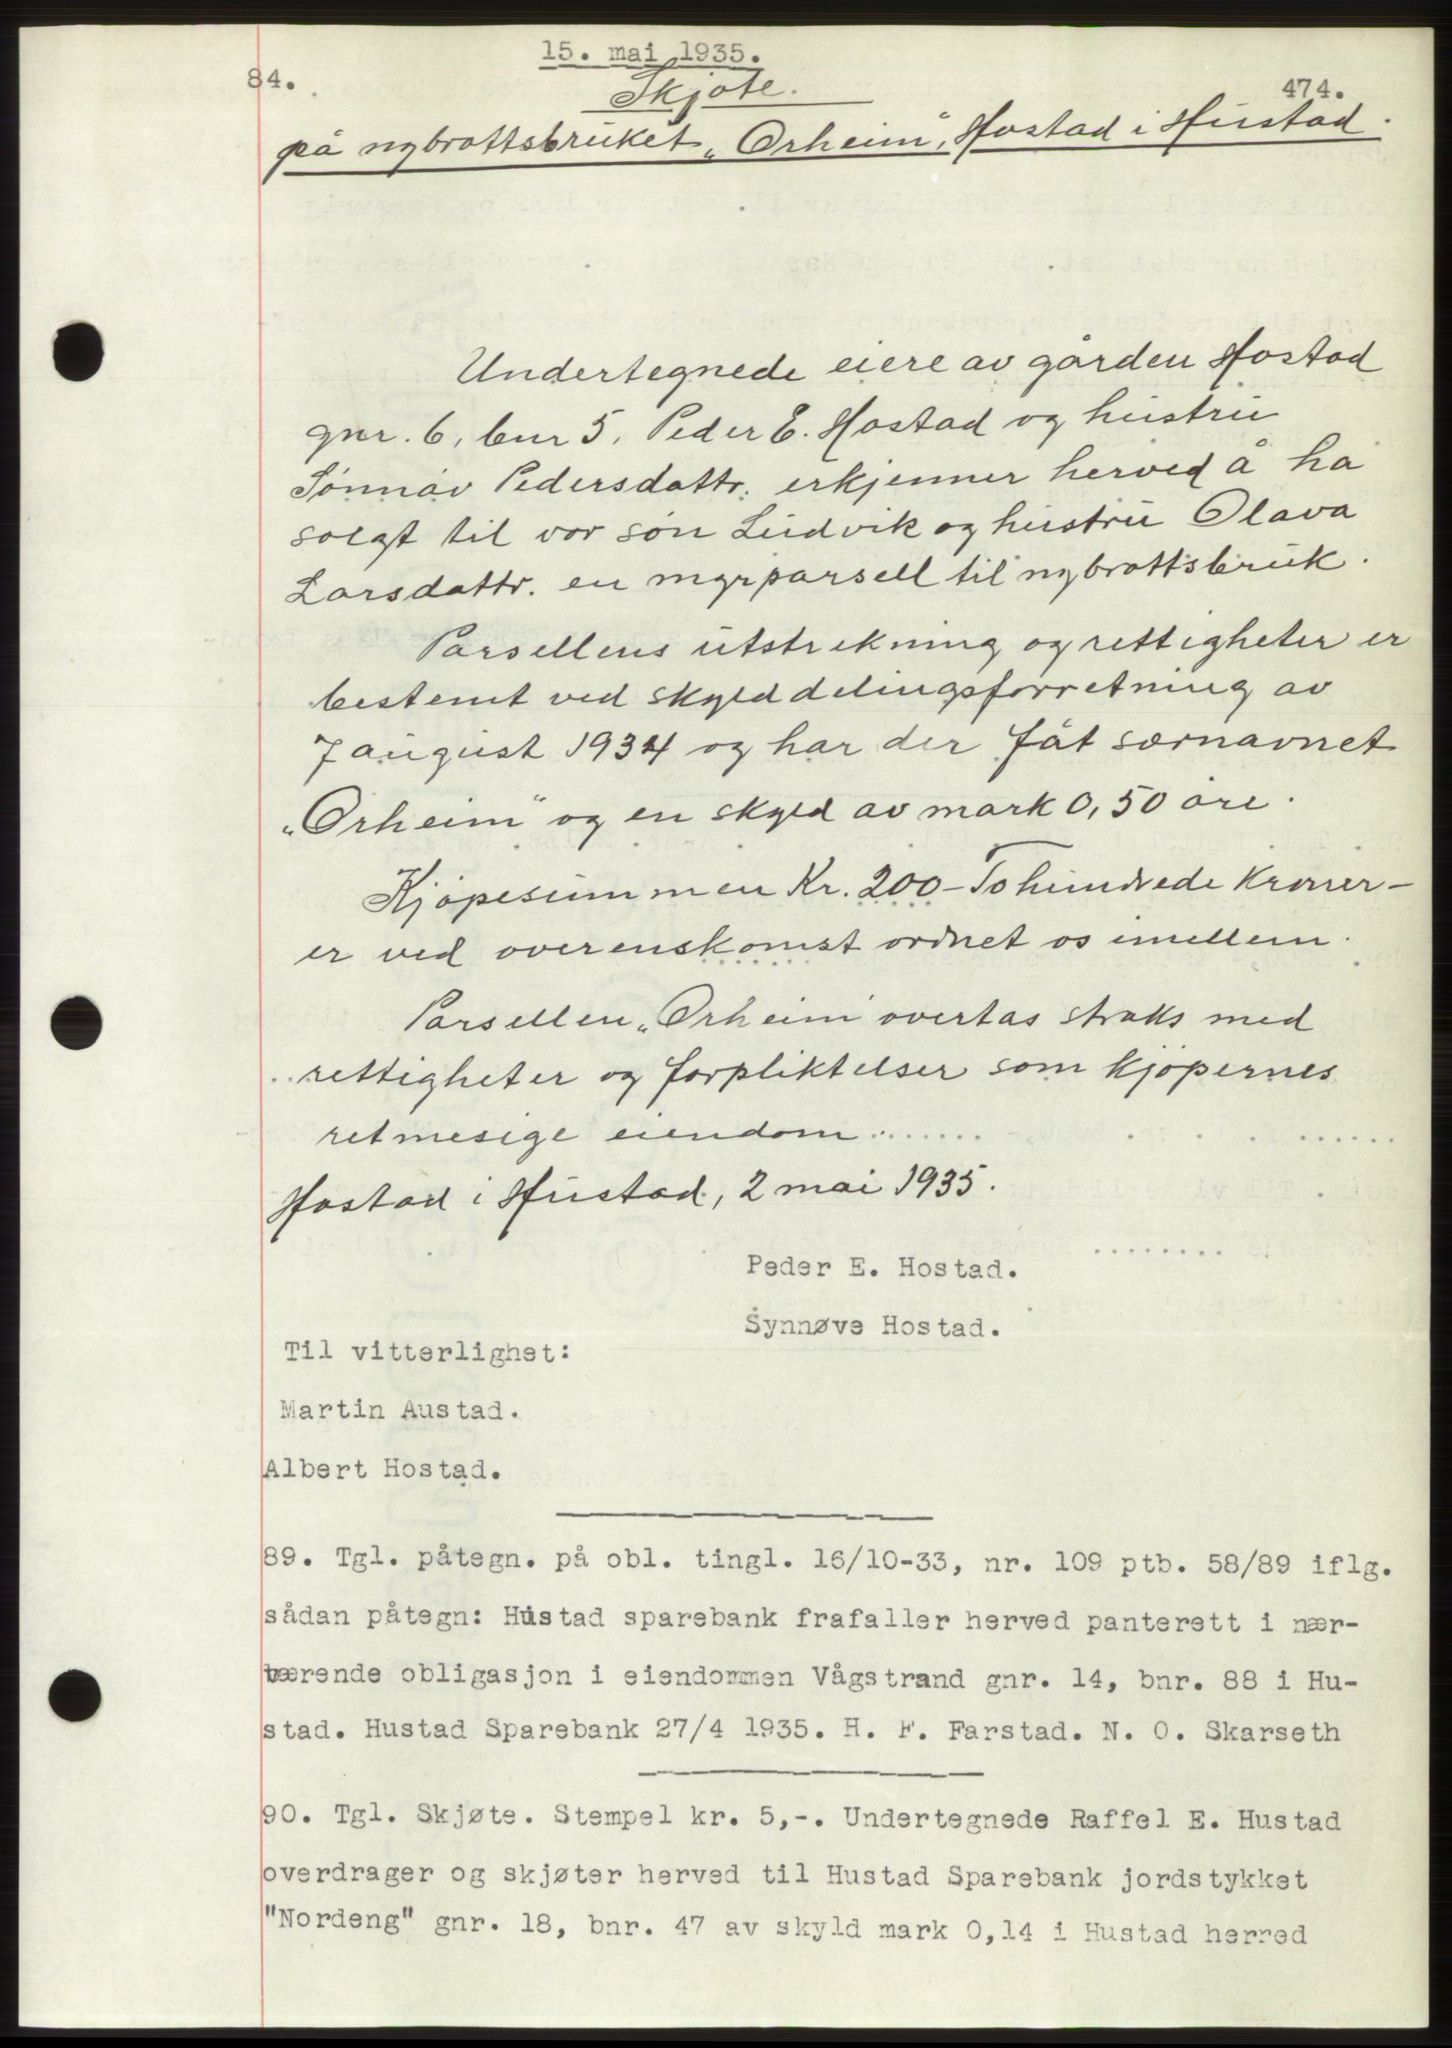 15. mai 1935.
84.
474.
Skjøte.
på nybrottsbruket „Orheim", Hostad i Hustad.
Undertegnede eiere av gården Hostad
gnr. 6, bnr 5, Peder E. Hostad og hustru
Sønnøv Pedersdattr. erkjenner herved å ha
solgt til vor søn Ludvik og hustru Olava
Larsdattr. en myrparsell til nybrottsbruk.
Parsellens utstrekning og rettigheter er
bestemt ved skylddelingsforretning av
7 august 1934 og har der fåt særnavnet
„Orheim" og en skyld av mark 0,50 øre.
Kjøpesummen Kr. 200 – Tohundrede Kroner –
er ved overenskomst ordnet os imellem.
Parsellen „Orheim" overtas straks med
rettigheter og forpliktelser som kjøpernes
retmesige eiendom.......
Hostad i Hustad, 2 mai 1935.
Peder E. Hostad.
Synnøve Hostad.
Til vitterlighet:
Martin Austad.
Albert Hostad.
89. Tgl. påtegn. på obl. tingl. 16/10-33, nr. 109 ptb. 58/89 iflg.
sådan påtegn: Hustad sparebank frafaller herved panterett i nær-
værende obligasjon i eiendommen Vågstrand gnr. 14, bnr. 88 i Hu-
stad. Hustad Sparebank 27/4 1935. H. F. Farstad. N. O. Skarseth
90. Tgl. Skjøte. Stempel kr. 5,-. Undertegnede Raffel E. Hustad
overdrager og skjøter herved til Hustad Sparebank jordstykket
"Nordeng" gnr. 18, bnr. 47 av skyld mark 0,14 i Hustad herred